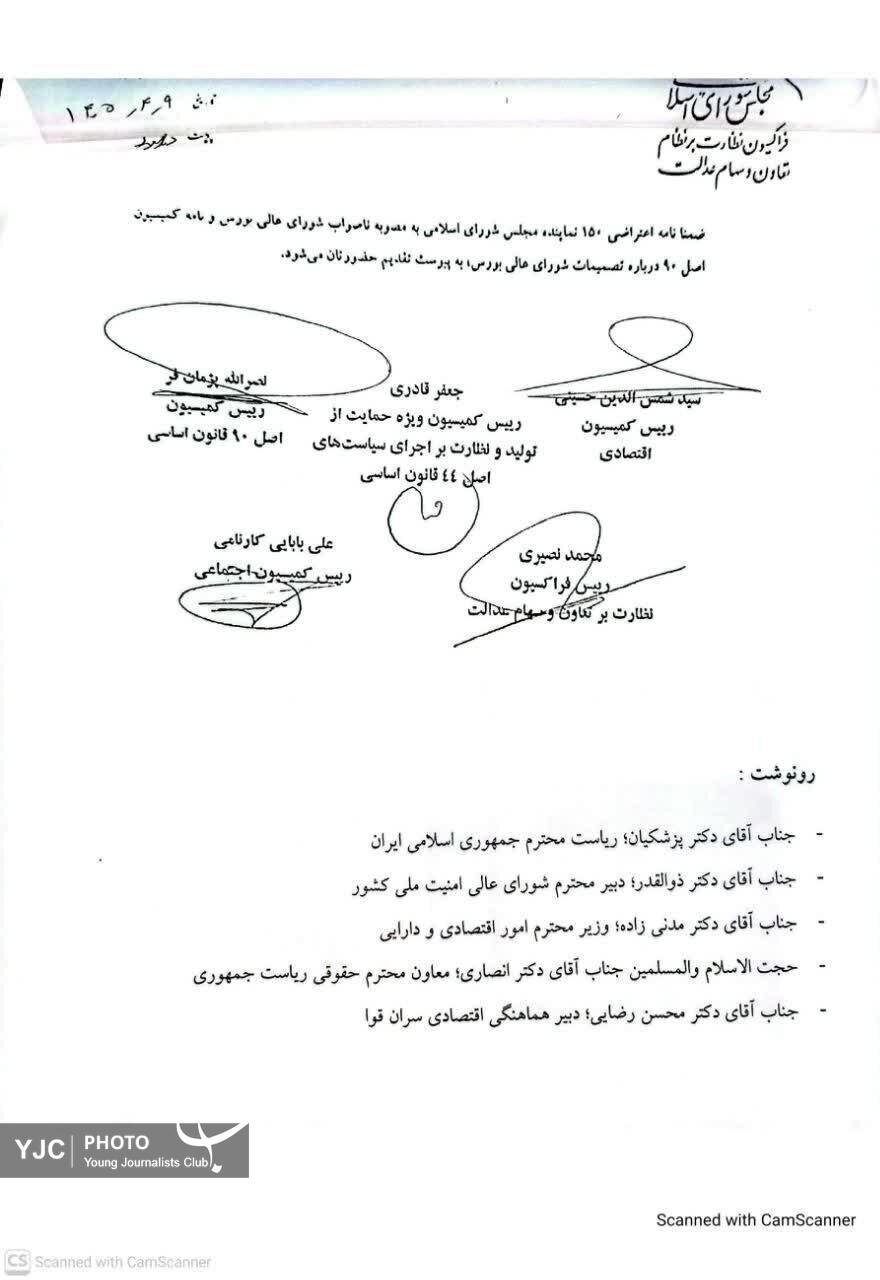 مجلس شورای اسلامی
فراکسیون نظارت بر نظام
تعاون و سهام عدالت
۱۴۰۵,۴,۹
ضمنا نامه اعتراضی ۱۵۰ نماینده مجلس شورای اسلامی به مصوبه ناصواب شورای عالی بورس و نامه کمیسیون
اصل ۹۰ درباره تصمیمات شورای عالی بورس؛ به پیوست تقدیم حضورتان می‌شود.
سید شمس الدین حسینی
رییس کمیسیون
اقتصادی
جعفر قادری
رییس کمیسیون ویژه حمایت از
تولید و نظارت بر اجرای سیاست‌های
اصل ٤٤ قانون اساسی
نصرالله پژمان فر
رییس کمیسیون
اصل ۹۰ قانون اساسی
محمد نصیری
رییس فراکسیون
نظارت بر تعاون و سهام عدالت
علی بابایی کارنامی
رییس کمیسیون اجتماعی
رونوشت :
- جناب آقای دکتر پزشکیان؛ ریاست محترم جمهوری اسلامی ایران
- جناب آقای دکتر ذوالقدر؛ دبیر محترم شورای عالی امنیت ملی کشور
- جناب آقای دکتر مدنی زاده؛ وزیر محترم امور اقتصادی و دارایی
- حجت الاسلام والمسلمین جناب آقای دکتر انصاری؛ معاون محترم حقوقی ریاست جمهوری
- جناب آقای دکتر محسن رضایی؛ دبیر هماهنگی اقتصادی سران قوا
YJC PHOTO
Young Journalists Club
Scanned with CamScanner
CS Scanned with CamScanner